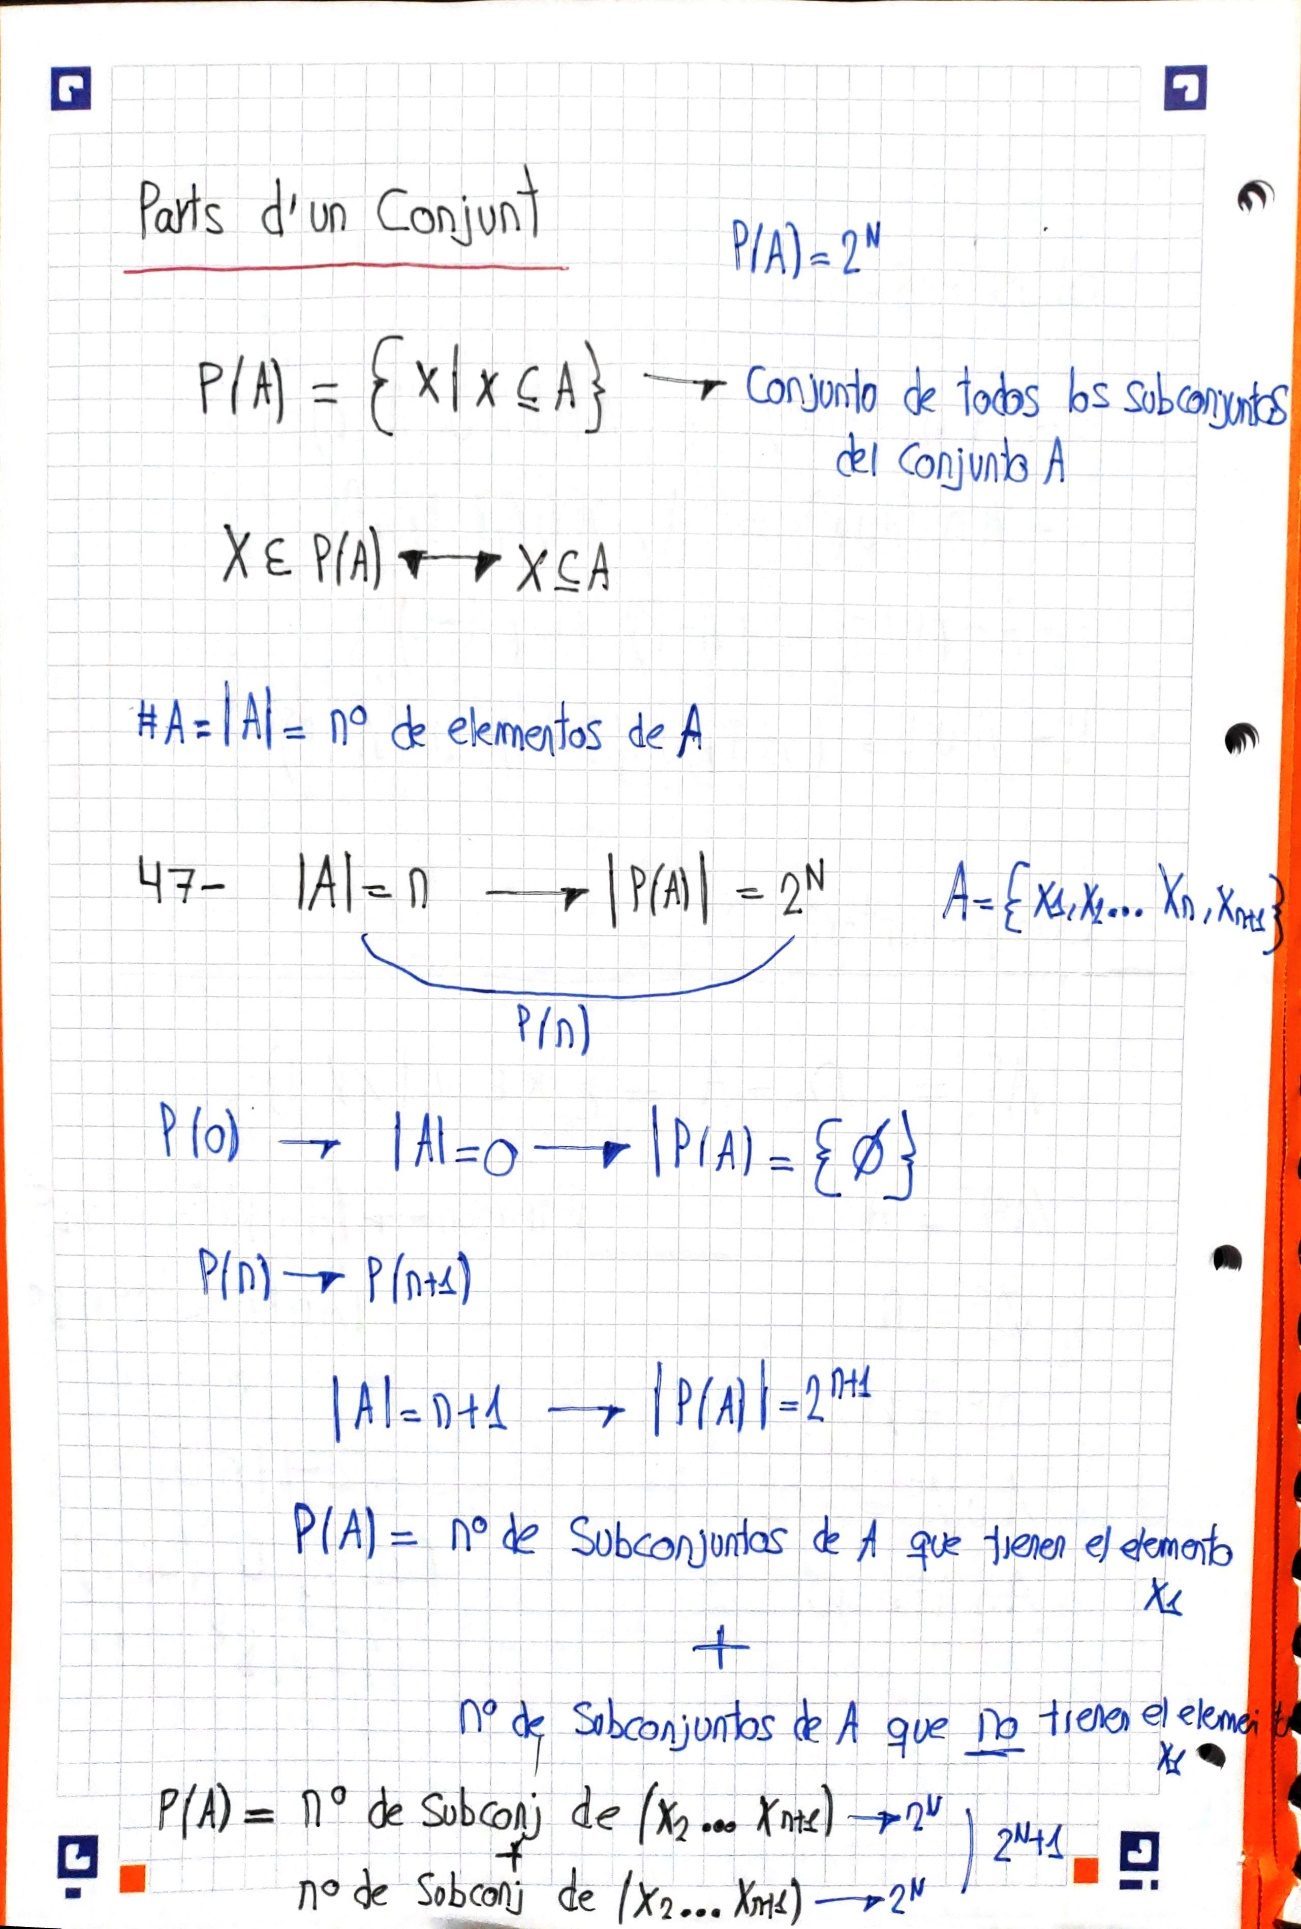 Parts d'un Conjunt
P(A) = 2^N
P(A) = {X | X ⊆ A} → Conjunto de todos los subconjuntos
del conjunto A
X ∈ P(A) ↔ X ⊆ A
#A = |A| = nº de elementos de A
47- |A| = n → |P(A)| = 2^N A = {X1, X2... Xn, Xn+1}
P(n)
P(0) → |A| = 0 → |P(A) = {∅}
P(n) → P(n+1)
|A| = n+1 → |P(A)| = 2^n+1
P(A) = nº de Subconjuntos de A que tienen el elemento
X1
+
nº de Subconjuntos de A que no tienen el element
X1
P(A) = nº de Subconj de (X2 ... Xn+1) → 2^N
+
) 2^N+1
nº de Subconj de (X2... Xn+1) → 2^N